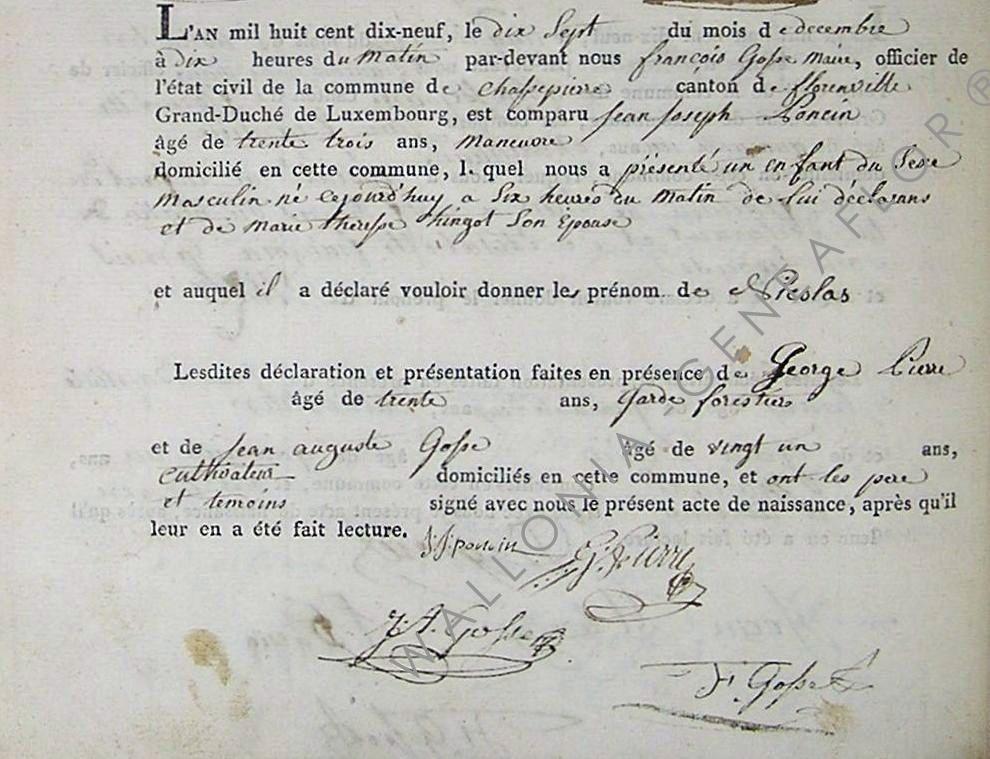 L'AN mil huit cent dix-neuf, le dix Sept du mois de decembre
à dix heures du Matin par-devant nous françois Gosse Maire, officier de
l'état civil de la commune de Chassepierre canton de florenville
Grand-Duché de Luxembourg, est comparu Jean Joseph Poncin
âgé de trente trois ans, Maneuvre
domicilié en cette commune, l. quel nous a présenté un enfant du Sexe
Masculin né cejourd'huy a Six heures du Matin de lui déclarans
et de Marie theresse hingot Son Epouse
et auquel il a déclaré vouloir donner les prénom de Nicolas
Lesdites déclaration et présentation faites en présence de George Pierre
âgé de trente ans, Garde forestier
et de Jean auguste Gosse âgé de vingt un ans,
cultivateur domiciliés en cette commune, et ont les pere
et temoins signé avec nous le présent acte de naissance, après qu'il
leur en a été fait lecture.
J. J. poncin G. Pierre
J. A. Gosse
F. Gosse
WALLONIA GENEAFLOR ®